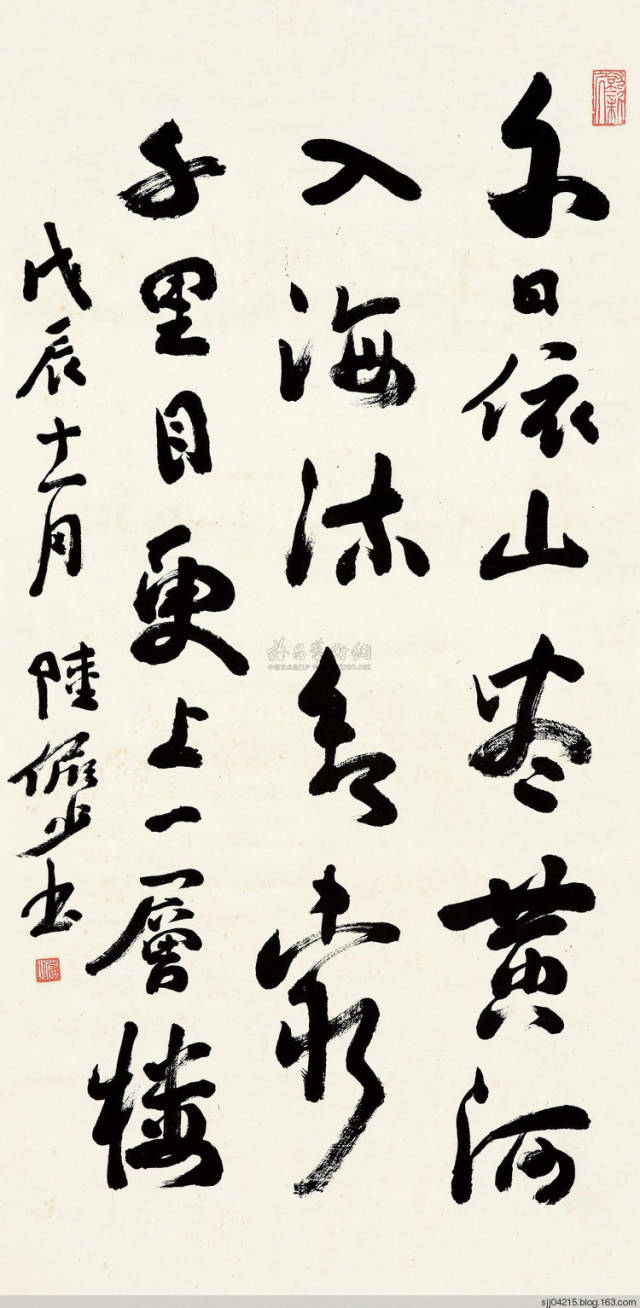 白日依山尽黄河
入海流欲窮
千里目更上一層楼
戊辰十一月 陸儼少书
sjj04215.blog.163.com